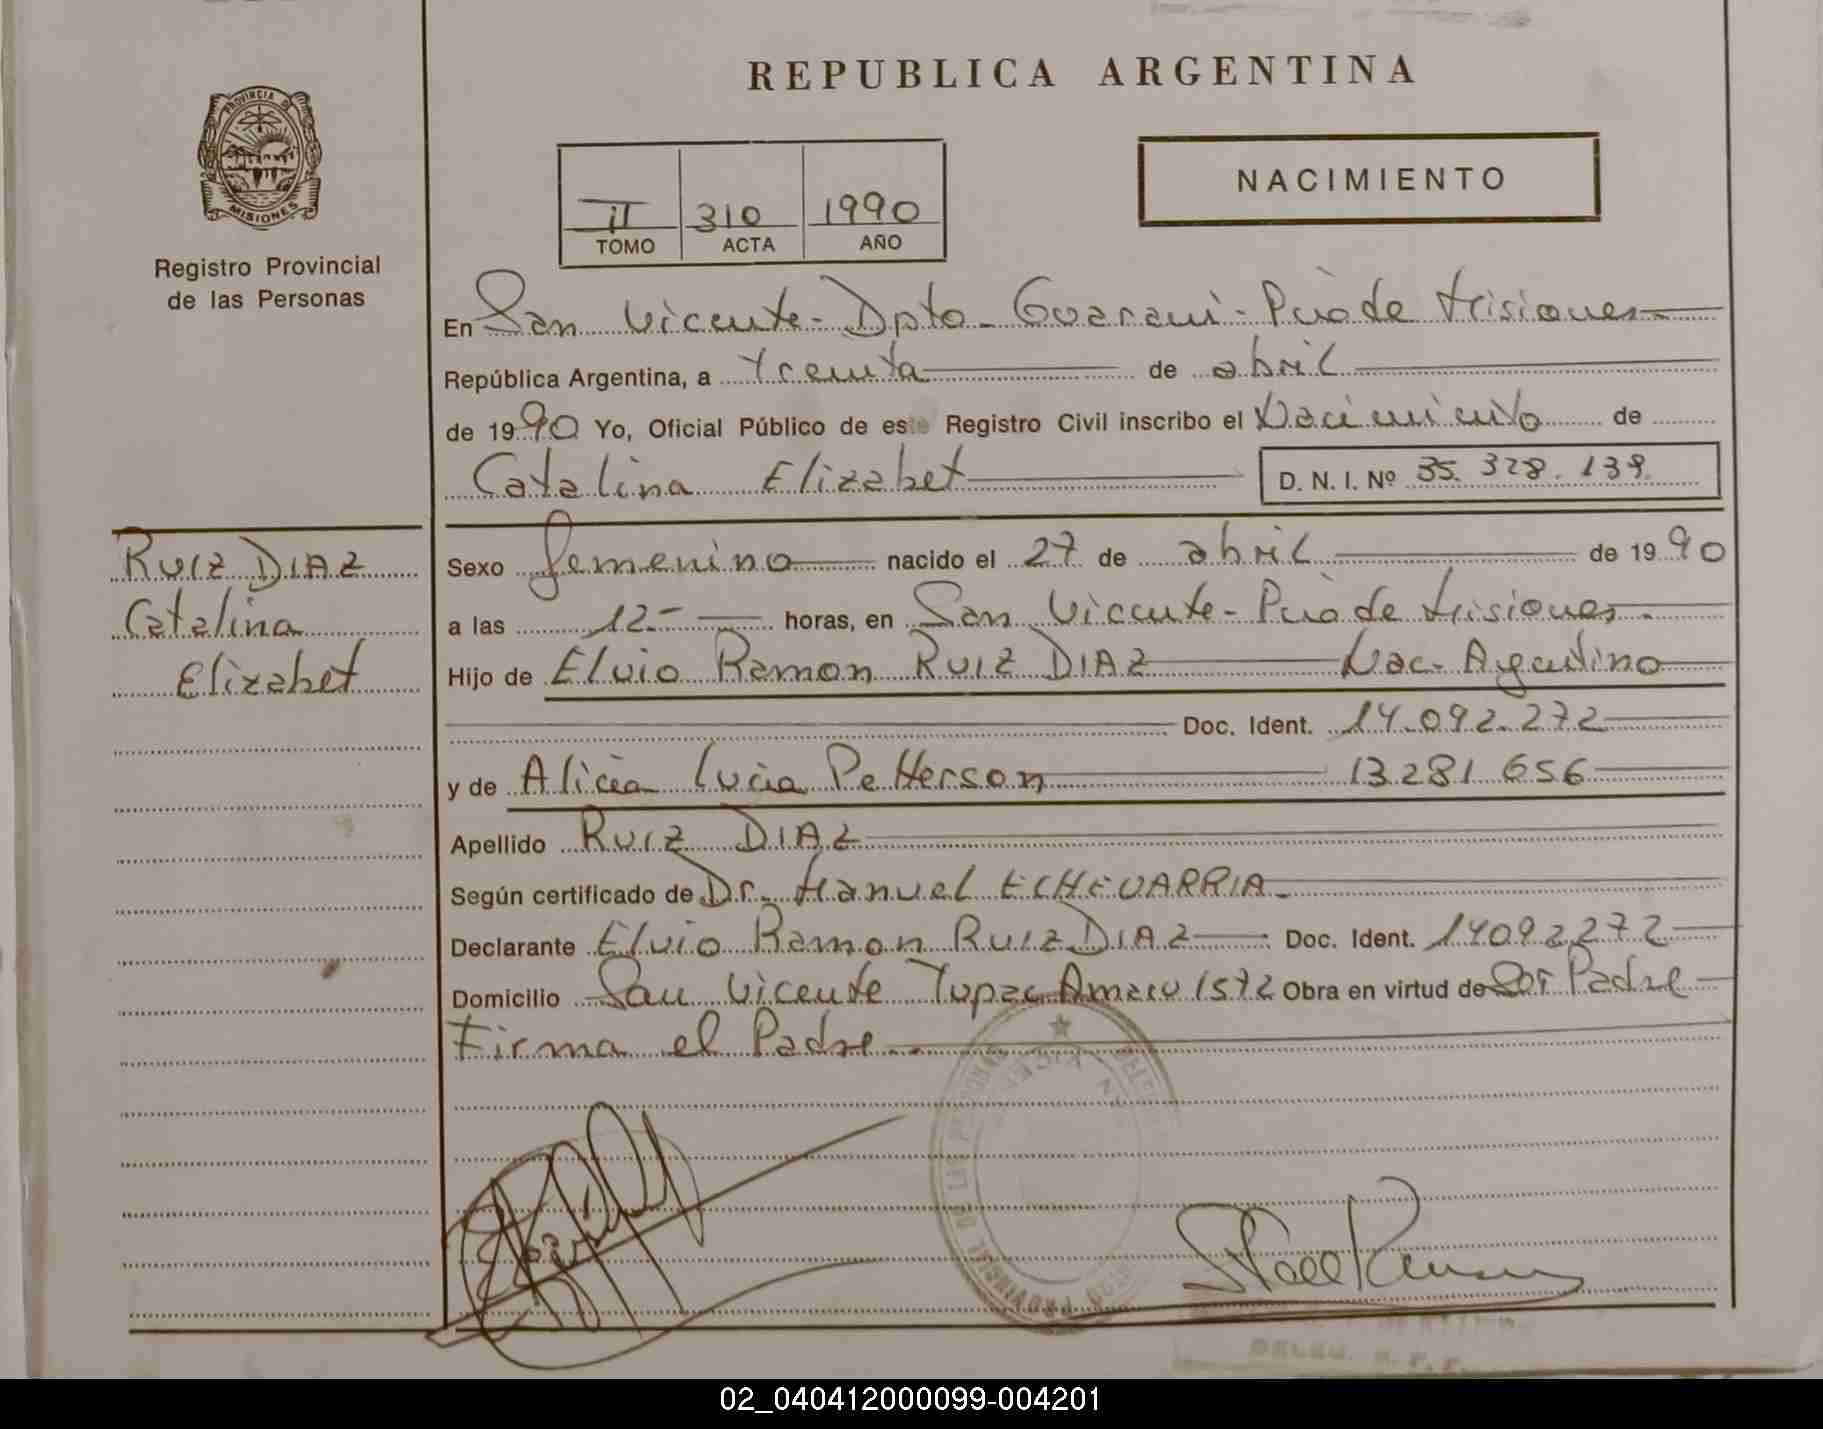 REPUBLICA ARGENTINA
PROVINCIA DE
MISIONES
Registro Provincial
de las Personas
II 310 1990
TOMO ACTA AÑO
NACIMIENTO
En San Vicente - Dpto - Guarani - Pcia de Misiones
República Argentina, a treinta de abril
de 1990 Yo, Oficial Público de este Registro Civil inscribo el Nacimiento de
Catalina Elizabet D. N. I. Nº 35.328.139.
RUIZ DIAZ
Catalina
Elizabet
Sexo femenino nacido el 27 de abril de 1990
a las 12- horas, en San Vicente - Pcia de Misiones.
Hijo de Elvio Ramon RUIZ DIAZ Nac. Argentino
Doc. Ident. 14.092.272
y de Alicia Lucia Petterson 13.281.656
Apellido RUIZ DIAZ
Según certificado de Dr. Manuel ECHEVARRIA
Declarante Elvio Ramon RUIZ DIAZ Doc. Ident. 14092272
Domicilio San Vicente Tupac Amaru 1572 Obra en virtud de Ser Padre
Firma el Padre
02_040412000099-004201